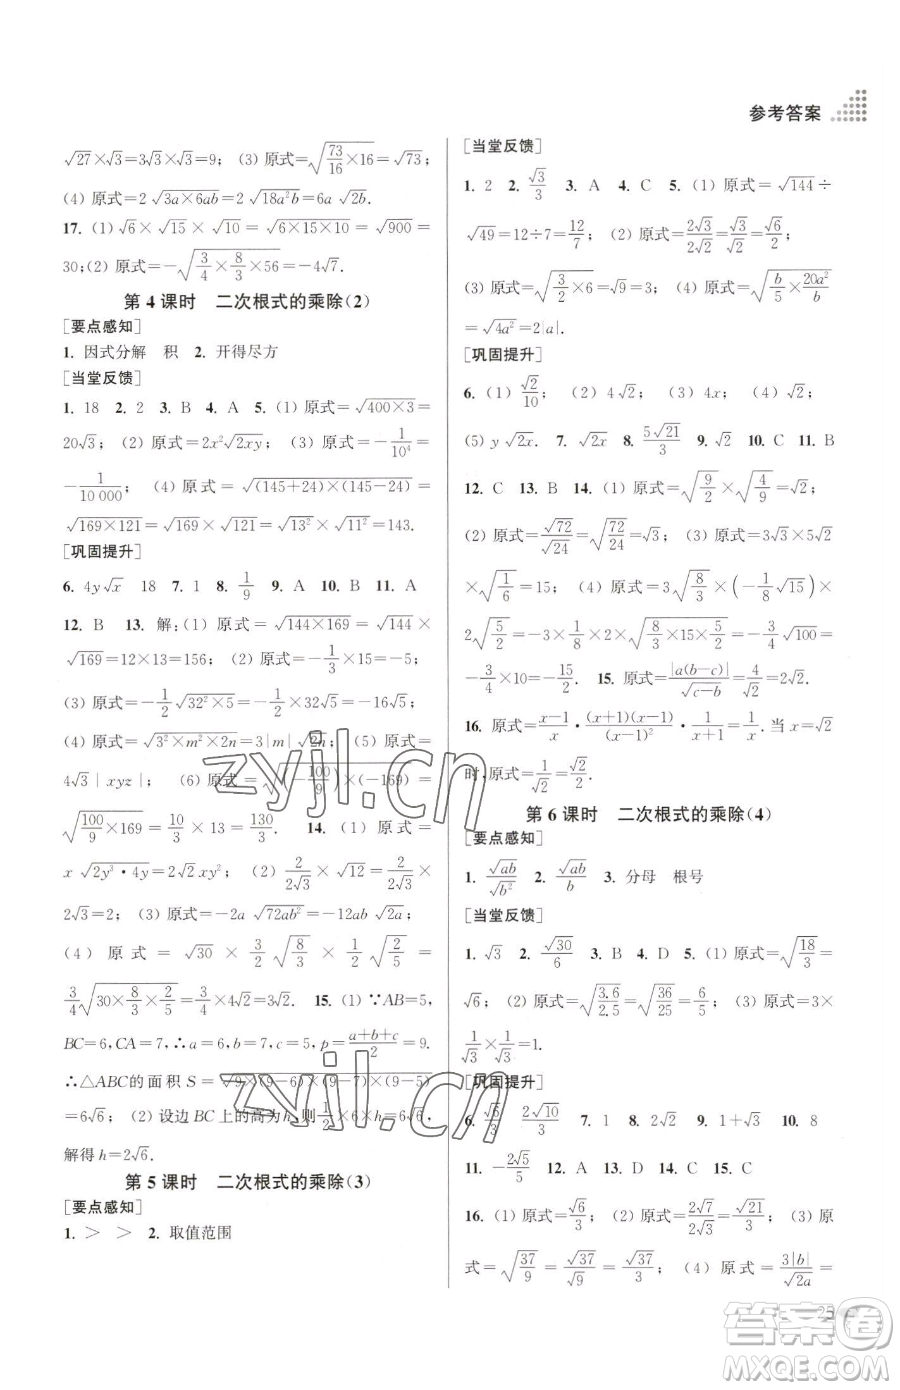 参考答案
√27×√3=3√3×√3=9; (3) 原式=√(73/16×16)=√73;
(4) 原式=2√(3a×6ab)=2√(18a²b)=6a√(2b).
17. (1) √6×√15×√10=√(6×15×10)=√900=
30;(2) 原式=-√(3/4×8/3×56)=-4√7.
第 4 课时 二次根式的乘除(2)
[要点感知]
1. 因式分解 积 2. 开得尽方
[当堂反馈]
1. 18 2. 2 3. B 4. A 5. (1) 原式=√(400×3)=
20√3; (2) 原式=2x²√(2xy); (3) 原式=-1/10⁴=
-1/10 000; (4) 原式=√((145+24)×(145-24))=
√(169×121)=√169×√121=√13²×√11²=143.
[巩固提升]
6. 4y√x 18 7. 1 8. 1/9 9. A 10. B 11. A
12. B 13. 解:(1) 原式=√(144×169)=√144×
√169=12×13=156; (2) 原式=-1/3×15=-5;
(3) 原式=-1/2√(32²×5)=-1/2×32√5=-16√5;
(4) 原式=√(3²×m²×2n)=3|m|√(2n); (5) 原式=
4√3|xyz|; (6) 原式=√((-100/9)×(-169))=
√(100/9×169)=10/3×13=130/3. 14. (1) 原式=
x√(2y³·4y)=2√2xy²; (2) 2/(2√3)×√12=2/(2√3)×
2√3=2; (3) 原式=-2a√(72ab²)=-12ab√(2a);
(4) 原式=√30×3/2√(8/3)×1/2√(2/5)=
3/4√(30×8/3×2/5)=3/4×4√2=3√2. 15. (1) ∵AB=5,
BC=6,CA=7,∴a=6,b=7,c=5,p=(a+b+c)/2=9.
∴△ABC的面积 S=√(9×(9-6)×(9-7)×(9-5))
=6√6; (2) 设边 BC 上的高为h,则1/2×6×h=6√6,
解得 h=2√6.
第 5 课时 二次根式的乘除(3)
[要点感知]
1. ＞ ＞ 2. 取值范围
[当堂反馈]
1. 2 2. √3/3 3. A 4. C 5. (1) 原式=√144÷
√49=12÷7=12/7; (2) 原式=2√3/2√2=√3/√2=√6/2;
(3) 原式=√(3/2×6)=√9=3; (4) 原式=√(b/5×20a²/b)
=√(4a²)=2|a|.
[巩固提升]
6. (1) √2/10; (2) 4√2; (3) 4x; (4) √2;
(5) y√(2x). 7. √(2x) 8. 5√21/3 9. √2 10. C 11. B
12. C 13. B 14. (1) 原式=√(9/2)×√(4/9)=√2;
(2) 原式=√72/√24=√(72/24)=√3; (3) 原式=3√3×5√2
×√(1/6)=15; (4) 原式=3√(8/3)×(-1/8√15)×
2√(5/2)=-3×1/8×2×√(8/3×15×5/2)=-3/4√100=
-3/4×10=-15/2. 15. 原式=|a(b-c)|/√(c-b)=4/√2=2√2.
16. 原式=(x-1)/x·(x+1)(x-1)/(x-1)²·1/(x+1)=1/x.当 x=√2
时,原式=1/√2=√2/2.
第 6 课时 二次根式的乘除(4)
[要点感知]
1. √(ab)/√(b²) 2. √(ab)/b 3. 分母 根号
[当堂反馈]
1. √3 2. √30/6 3. B 4. D 5. (1) 原式=√(18/3)=
√6; (2) 原式=√(3.6/2.5)=√(36/25)=6/5; (3) 原式=3×
1/√3×1/√3=1.
[巩固提升]
6. √6/3 2√10/3 7. 1 8. 2√2 9. 1+√3 10. 8
11. -2√5/5 12. C 13. C 14. A 15. D
16. (1) 原式=√6/3; (2) 原式=2√7/2√3=√21/3; (3) 原
式=√(37/9)=√37/√9=√37/3; (4) 原式=3|b|/√(2a)=
25
zyjl.cn
zyjl.cn
答案圈
MXQE.COM